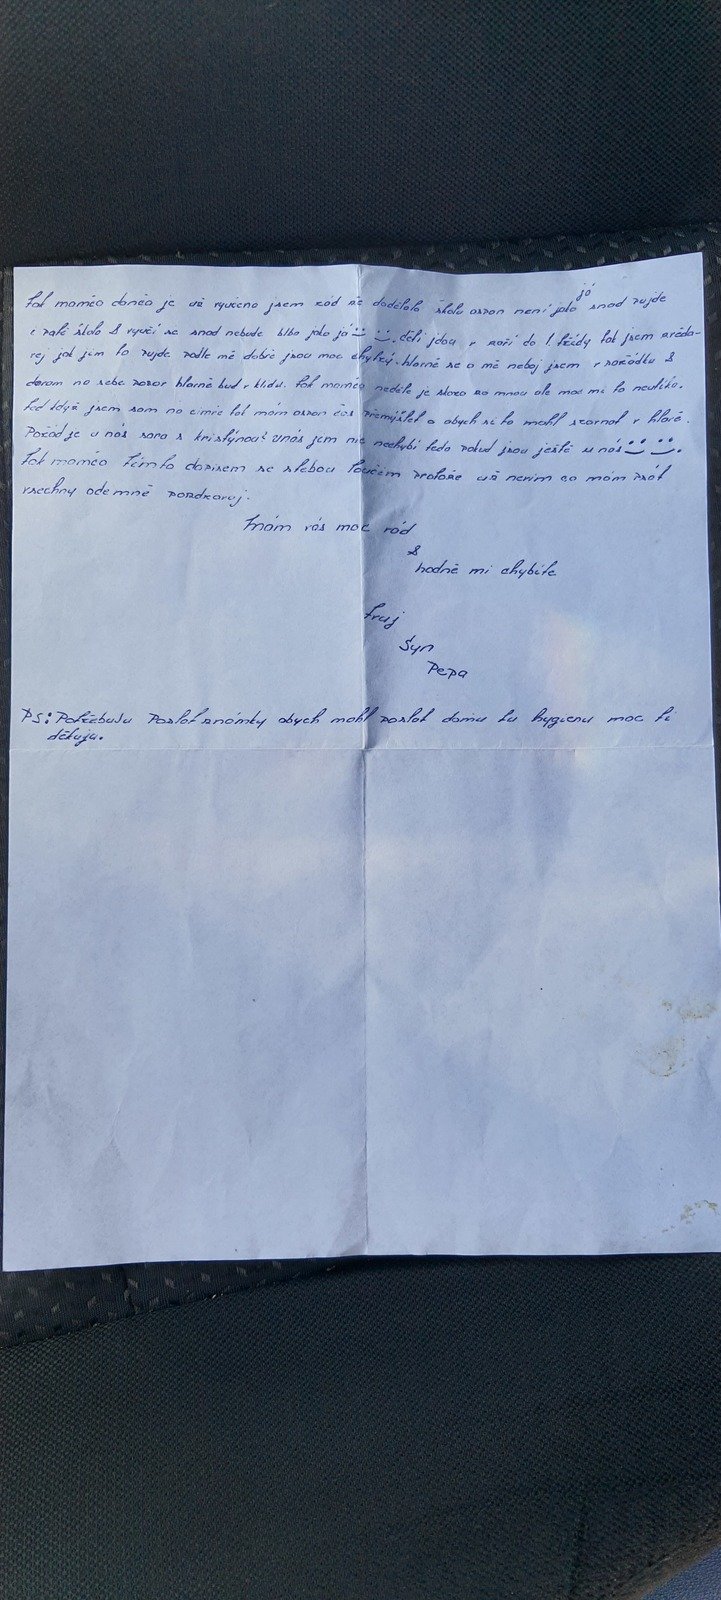 tak mamčo danča je už vyučena jsem rád že dodělala školu aspoň není jako já snad pujde
i Pajk škola & vyučí se snad nebude blbá jako já :) :). děti jdou v září do 1 třídy tak jsem zvěda-
vej jak jim to pujde podle mě dobře jsou moc chytrý. hlavně se o mě neboj jsem v pořádku &
davam na sebe pozor hlavně bud v klidu. tak mamčo neděle je skoro za mnou ale moc mi to neutíká.
ted když jsem sam na cimře tak mám aspon čas přemýšlet a abych si to mohl srovnat v hlavě.
Pořád je u nás sara s kristýnou? u nás jim nic nechybí teda pokud jsou ještě u nás :) :).
tak mamčo tímto dopisem se stebou loučím protože už nevim co mám psát
všechny odemně pozdravuj.
mám vás moc rád
&
hodně mi chybíte
tvuj
Syn
Pepa
PS: Potřebuju Poslat známky abych mohl poslat domu tu hygienu moc ti
děkuju.